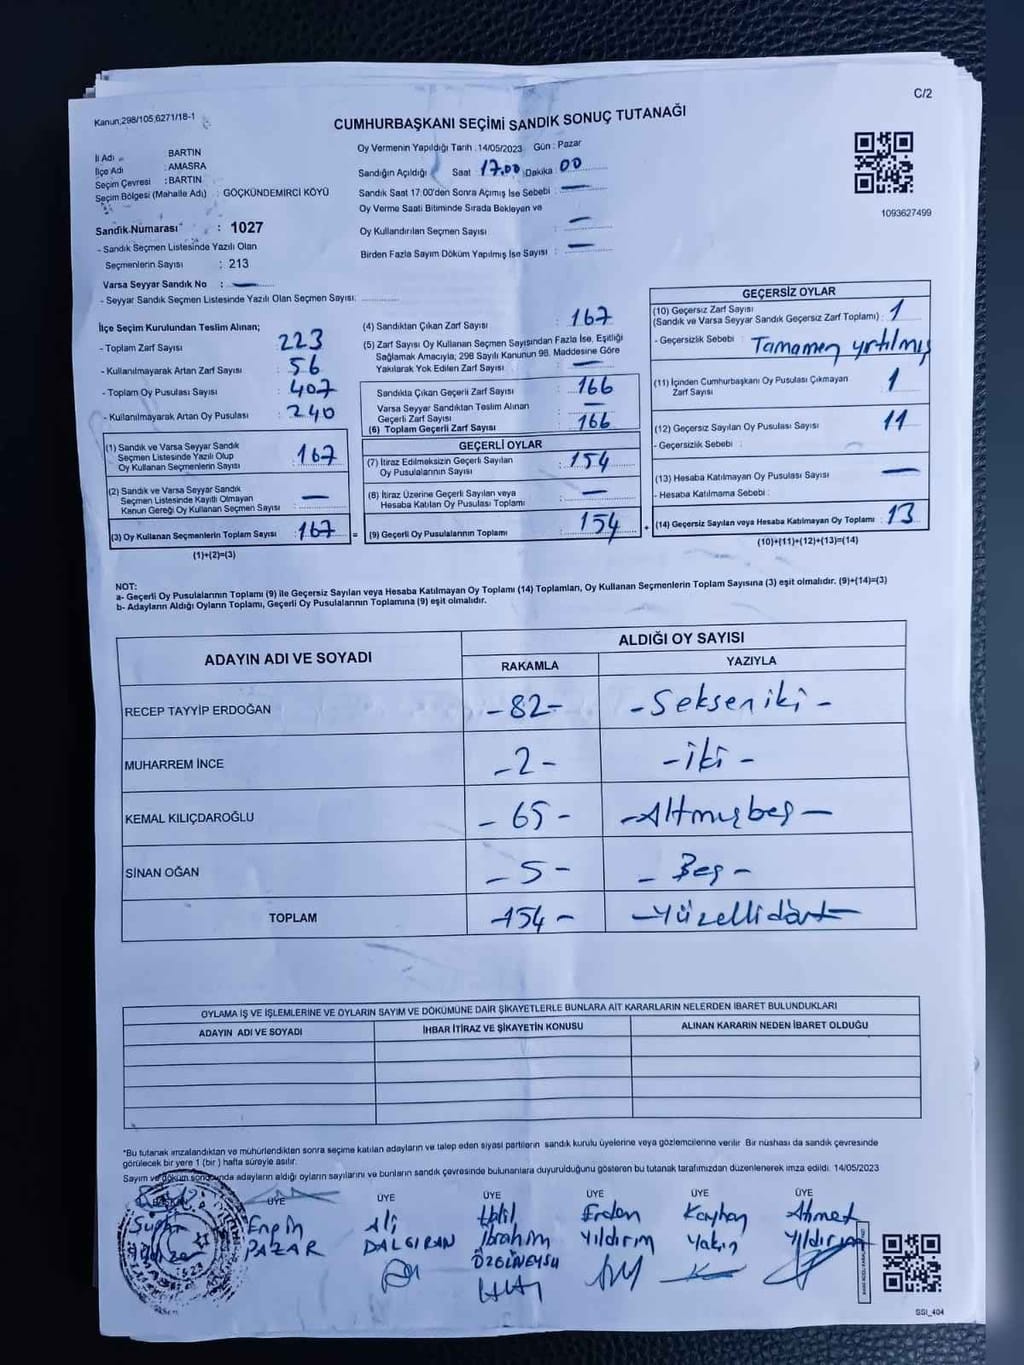 C/2
Kanun,298/105,6271/18-1
CUMHURBAŞKANI SEÇİMİ SANDIK SONUÇ TUTANAĞI
İl Adı : BARTIN
İlçe Adı : AMASRA
Seçim Çevresi : BARTIN
Seçim Bölgesi (Mahalle Adı) : GÖÇKÜNDEMİRCİ KÖYÜ
Sandık Numarası : 1027
- Sandık Seçmen Listesinde Yazılı Olan
Seçmenlerin Sayısı : 213
Varsa Seyyar Sandık No : —
- Seyyar Sandık Seçmen Listesinde Yazılı Olan Seçmen Sayısı:
Oy Vermenin Yapıldığı Tarih : 14/05/2023 Gün : Pazar
Sandığın Açıldığı Saat 17.00 Dakika 00
Sandık Saat 17:00'den Sonra Açımış İse Sebebi : —
Oy Verme Saati Bitiminde Sırada Bekleyen ve
Oy Kullandırılan Seçmen Sayısı : —
Birden Fazla Sayım Döküm Yapılmış İse Sayısı : —
1093627499
İlçe Seçim Kurulundan Teslim Alınan;
- Toplam Zarf Sayısı : 223
- Kullanılmayarak Artan Zarf Sayısı : 56
- Toplam Oy Pusulası Sayısı : 407
- Kullanılmayarak Artan Oy Pusulası : 240
(1) Sandık ve Varsa Seyyar Sandık
Seçmen Listesinde Yazılı Olup
Oy Kullanan Seçmenlerin Sayısı : 167
(2) Sandık ve Varsa Seyyar Sandık
Seçmen Listesinde Kayıtlı Olmayan
Kanun Gereği Oy Kullanan Seçmen Sayısı : —
(3) Oy Kullanan Seçmenlerin Toplam Sayısı : 167
(1)+(2)=(3)
(4) Sandıktan Çıkan Zarf Sayısı : 167
(5) Zarf Sayısı Oy Kullanan Seçmen Sayısından Fazla İse, Eşitliği
Sağlamak Amacıyla; 298 Sayılı Kanunun 98. Maddesine Göre
Yakılarak Yok Edilen Zarf Sayısı : —
Sandıkta Çıkan Geçerli Zarf Sayısı : 166
Varsa Seyyar Sandıktan Teslim Alınan
Geçerli Zarf Sayısı : —
(6) Toplam Geçerli Zarf Sayısı : 166
GEÇERLİ OYLAR
(7) İtiraz Edilmeksizin Geçerli Sayılan
Oy Pusulalarının Sayısı : 154
(8) İtiraz Üzerine Geçerli Sayılan veya
Hesaba Katılan Oy Pusulası Toplamı : —
= (9) Geçerli Oy Pusulalarının Toplamı : 154
GEÇERSİZ OYLAR
(10) Geçersiz Zarf Sayısı
(Sandık ve Varsa Seyyar Sandık Geçersiz Zarf Toplamı) : 1
- Geçersizlik Sebebi : Tamamen yırtılmış
(11) İçinden Cumhurbaşkanı Oy Pusulası Çıkmayan
Zarf Sayısı : 1
(12) Geçersiz Sayılan Oy Pusulası Sayısı : 11
- Geçersizlik Sebebi :
(13) Hesaba Katılmayan Oy Pusulası Sayısı : —
Hesaba Katılmama Sebebi :
+ (14) Geçersiz Sayılan veya Hesaba Katılmayan Oy Toplamı : 13
(10)+(11)+(12)+(13)=(14)
NOT:
a- Geçerli Oy Pusulalarının Toplamı (9) ile Geçersiz Sayılan veya Hesaba Katılmayan Oy Toplamı (14) Toplamları, Oy Kullanan Seçmenlerin Toplam Sayısına (3) eşit olmalıdır. (9)+(14)=(3)
b- Adayların Aldığı Oyların Toplamı, Geçerli Oy Pusulalarının Toplamına (9) eşit olmalıdır.
ADAYIN ADI VE SOYADI
ALDIĞI OY SAYISI
RAKAMLA YAZIYLA
RECEP TAYYİP ERDOĞAN -82- -Seksen iki-
MUHARREM İNCE -2- -iki-
KEMAL KILIÇDAROĞLU -65- -Altmışbeş-
SİNAN OĞAN -5- -Beş-
TOPLAM -154- -Yüzellidört-
OYLAMA İŞ VE İŞLEMLERİNE VE OYLARIN SAYIM VE DÖKÜMÜNE DAİR ŞİKAYETLERLE BUNLARA AİT KARARLARIN NELERDEN İBARET BULUNDUKLARI
ADAYIN ADI VE SOYADI İHBAR İTİRAZ VE ŞİKAYETİN KONUSU ALINAN KARARIN NEDEN İBARET OLDUĞU
*Bu tutanak imzalandıktan ve mühürlendikten sonra seçime katılan adayların ve talep eden siyasi partilerin sandık kurulu üyelerine veya gözlemcilerine verilir. Bir nüshası da sandık çevresinde
görülecek bir yere 1 (bir) hafta süreyle asılır.
Sayım ve döküm sonucunda adayların aldığı oyların sayılarını ve bunların sandık çevresinde bulunanlara duyurulduğunu gösteren bu tutanak tarafımızdan düzenlenerek imza edildi. 14/05/2023
ÜYE ÜYE ÜYE ÜYE ÜYE ÜYE
Engin PAZAR
Ali DALGIRAN
Halil İbrahim ÖZGÜNEYSU
Erdem Yıldırım
Kayhan Yakın
Ahmet Yıldırım
SSI_404